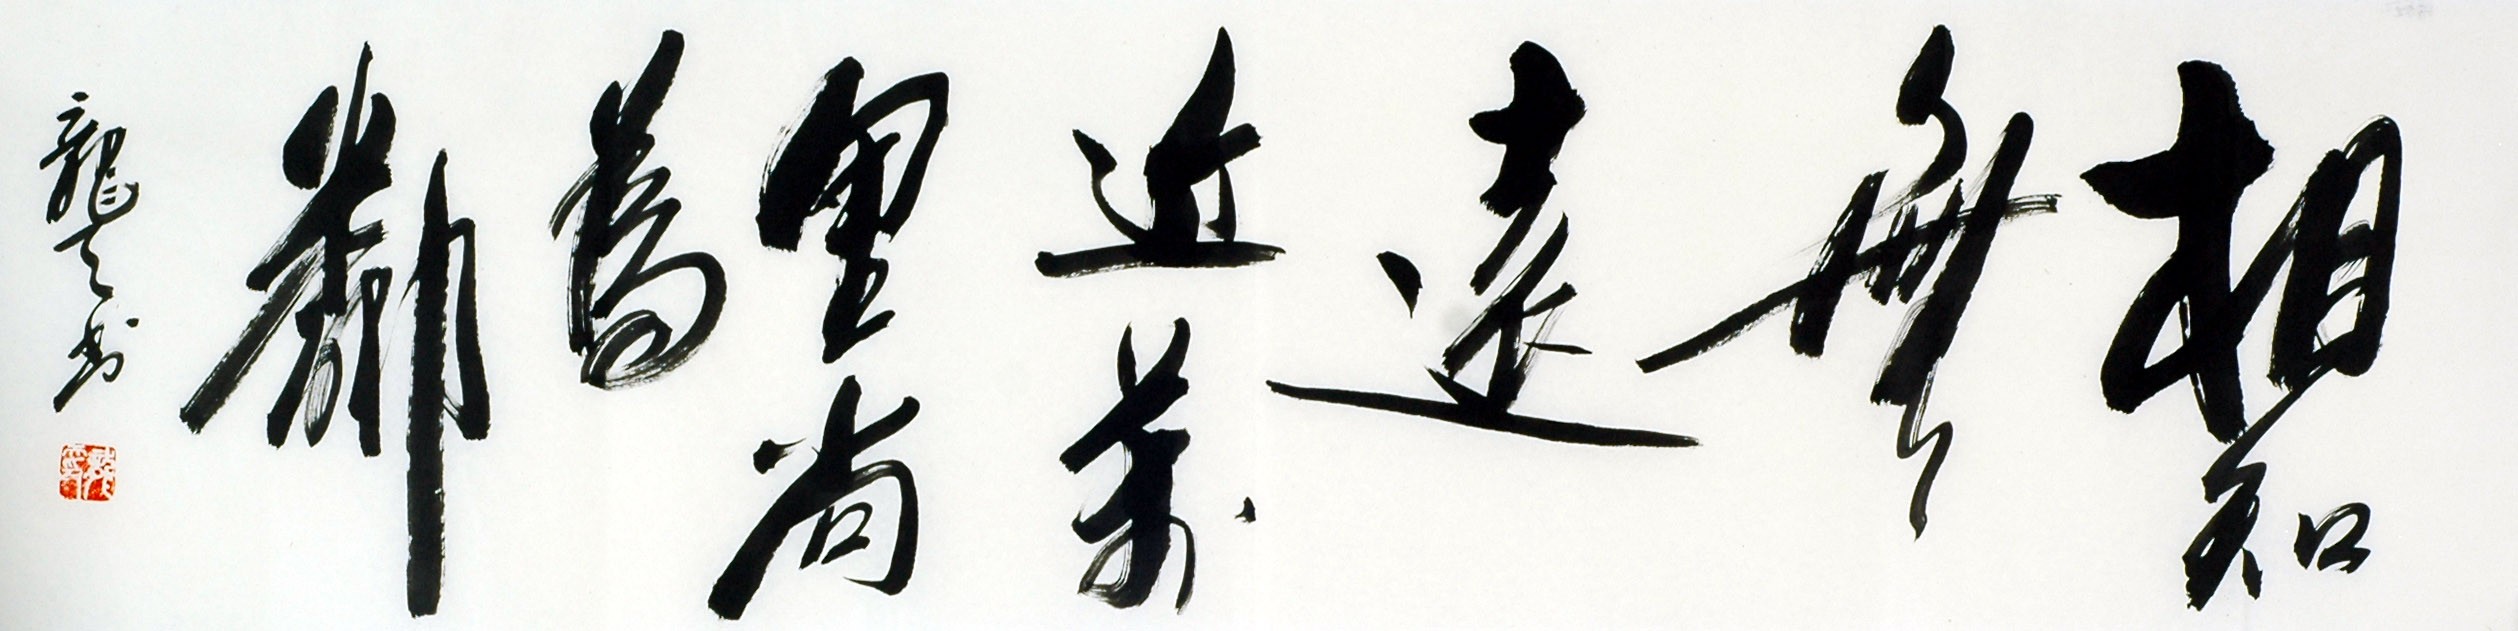 相知
無
遠
近萬
里尚
為
鄰
龍云書